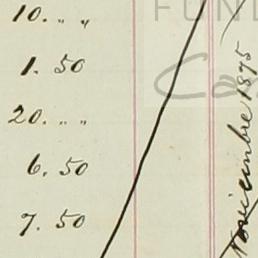 10. „ „
1. 50
20. „ „
6. 50
7. 50
Noviembre 1875
FUND
Ca